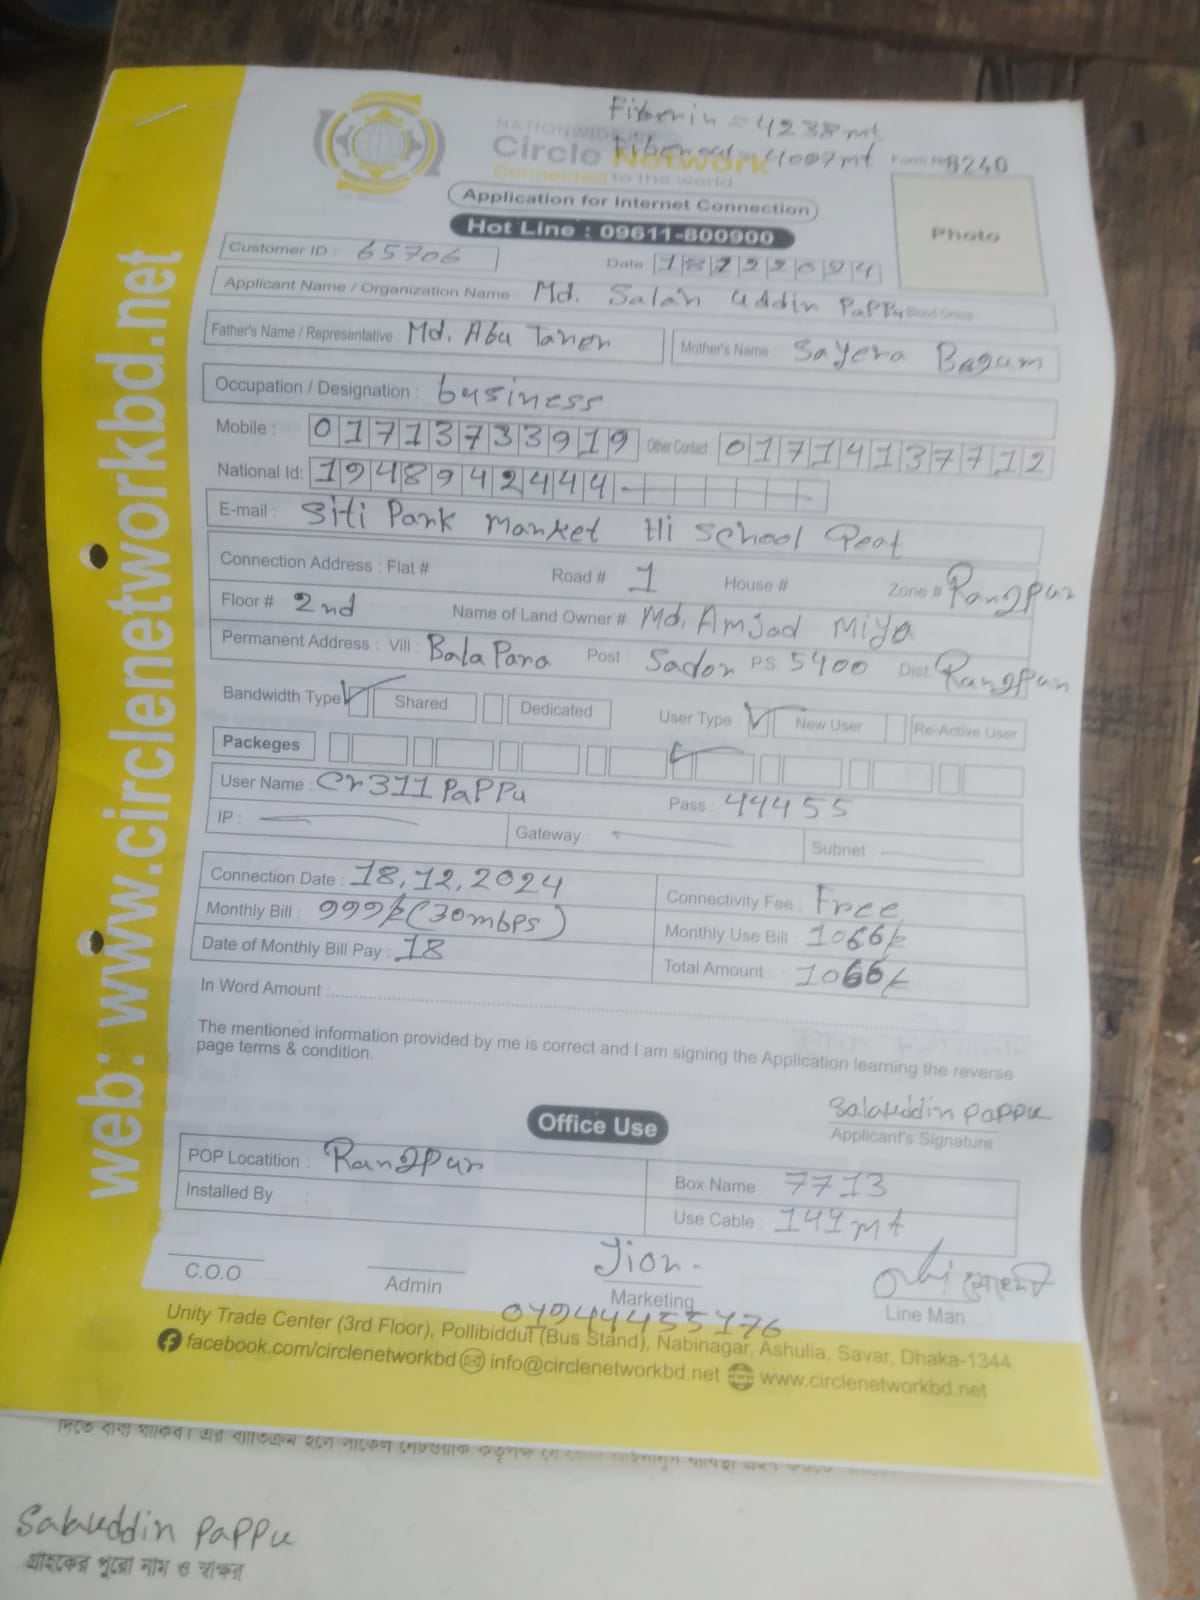 Fiberin = 4238mt
NATIONWIDE ISP
Circle Network
Fiber out = 4007mt
Form No 8240
Connected to the world
Application for Internet Connection
Hot Line : 09611-800900
Photo
Customer ID : 65706
Date 18122024
Applicant Name / Organization Name : Md. Salah uddin PaPPu Blood Group
Father's Name / Representative : Md. Abu Taher Mother's Name : Sayera Bagum
Occupation / Designation : business
Mobile : 01713733919 Other Contact : 01714137712
National Id: 1948942444
E-mail : Siti Park Market Hi School Geat
Connection Address : Flat # Road # 1 House # Zone # Rangpur
Floor # 2nd Name of Land Owner # Md. Amjad Miya
Permanent Address : Vill : Bala Para Post : Sador P.S. 5400 Dist : Rangpur
Bandwidth Type Shared Dedicated User Type : New User Re-Active User
Packeges
User Name : Cr311PaPPu Pass : 44455
IP : Gateway : Subnet :
Connection Date : 18,12,2024 Connectivity Fee : Free
Monthly Bill : 999/= (30mbps) Monthly Use Bill : 1066/=
Date of Monthly Bill Pay : 18 Total Amount : 1066/=
In Word Amount :
The mentioned information provided by me is correct and I am signing the Application learning the reverse
page terms & condition.
Salauddin pappu
Applicant's Signature
Office Use
POP Locatition : Rangpur Box Name : 7713
Installed By : Use Cable : 141mt
Jion-
C.O.O Admin Marketing Line Man
01944455176
Unity Trade Center (3rd Floor), Pollibiddut (Bus Stand), Nabinagar, Ashulia, Savar, Dhaka-1344
facebook.com/circlenetworkbd info@circlenetworkbd.net www.circlenetworkbd.net
web: www.circlenetworkbd.net
Salauddin pappu
গ্রাহকের পুরো নাম ও স্বাক্ষর